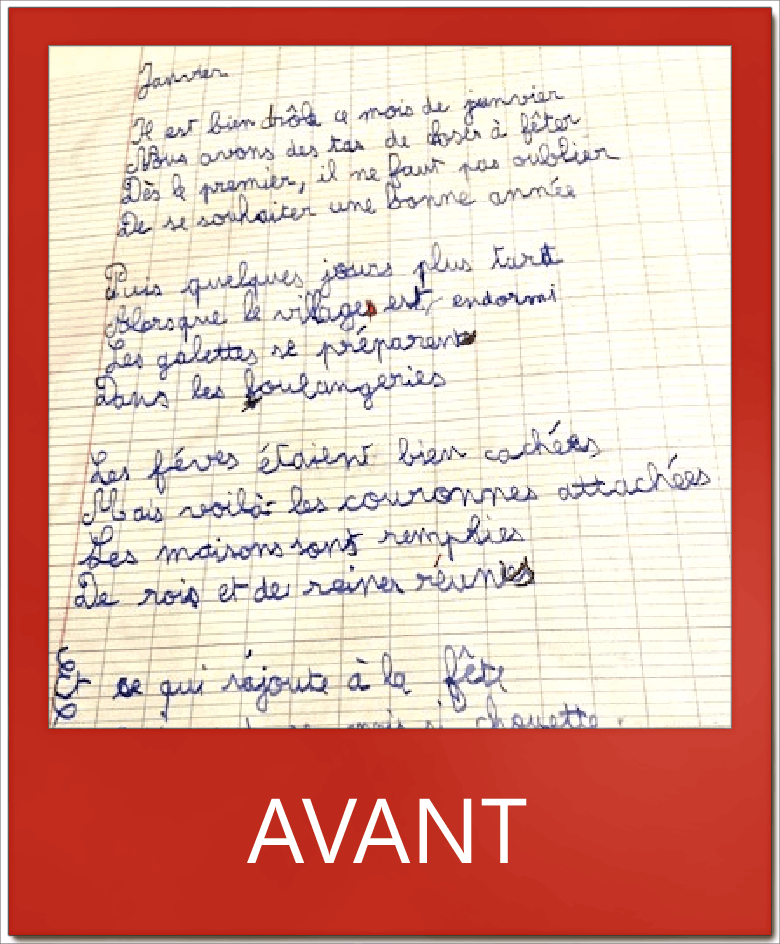 Janvier
Il est bien drôle ce mois de janvier
Nous avons des tas de choses à fêter
Dès le premier, il ne faut pas oublier
De se souhaiter une bonne année
Puis quelques jours plus tard
Alorsque le villages est endormi
Les galettes se préparent
Dans les boulangeries
Les féves étaient bien cachées
Mais voilà les couronnes attachées
Les maisons sont remplies
De rois et de reines réunies
Et ce qui s'ajoute à la fête
mois si chouette.
AVANT